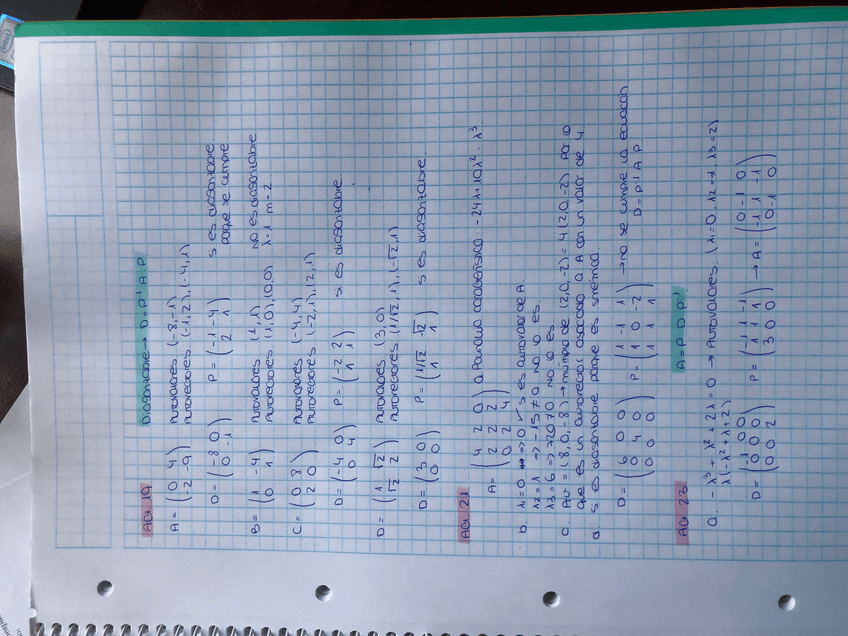 Act 19 Diagonalizable → D = P⁻¹ · A · P
A = (0 4 / -2 -9) Autovalores (-8, -1)
Autovectores (-1, 2), (-4, 1)
D = (-8 0 / 0 -1) P = (-1 -4 / 2 1) si es diagonalizable
porque se cumple.
B = (1 -4 / 0 1) Autovalores (1, 1) no es diagonalizable
Autovectores (1, 0), (0, 0) λ=1 m=2
C = (0 8 / 2 0) Autovalores (-4, 4)
Autovectores (-2, 1), (2, 1)
D = (-4 0 / 0 4) P = (-2 2 / 1 1) si es diagonalizable
D = (1 √2 / √2 2) Autovalores (3, 0)
Autovectores (1/√2, 1), (-√2, 1)
D = (3 0 / 0 0) P = (1/√2 -√2 / 1 1) si es diagonalizable.
Act 21
A = (4 2 0 / 2 2 2 / 0 2 4) a. Polinomio característico -24λ + 10λ² - λ³
b. λ1 = 0 => 0 ✓ si es autovalor de A.
λ2 = 1 => -15 ≠ 0 no lo es.
λ3 = 6 => 720 ≠ 0 no lo es
c. Av = (8, 0, -8) → múltiplo de (2, 0, -2) = 4(2, 0, -2) por lo
que es un autovector asociado a A con un valor de 4.
d. si es diagonalizable porque es simétrica.
D = (6 0 0 / 0 4 0 / 0 0 0) P = (1 -1 1 / 1 0 -2 / 1 1 1) → no se cumple la ecuación
D = P⁻¹ A · P
Act 23 A = P · D · P⁻¹
a. -λ³ + λ² + 2λ = 0 → Autovalores: (λ1 = 0, λ2 = -1, λ3 = 2)
λ(-λ² + λ + 2)
D = (-1 0 0 / 0 0 0 / 0 0 2) P = (-1 1 -1 / 1 1 1 / 3 0 0) → A = (0 -1 0 / -1 1 -1 / 0 -1 0)